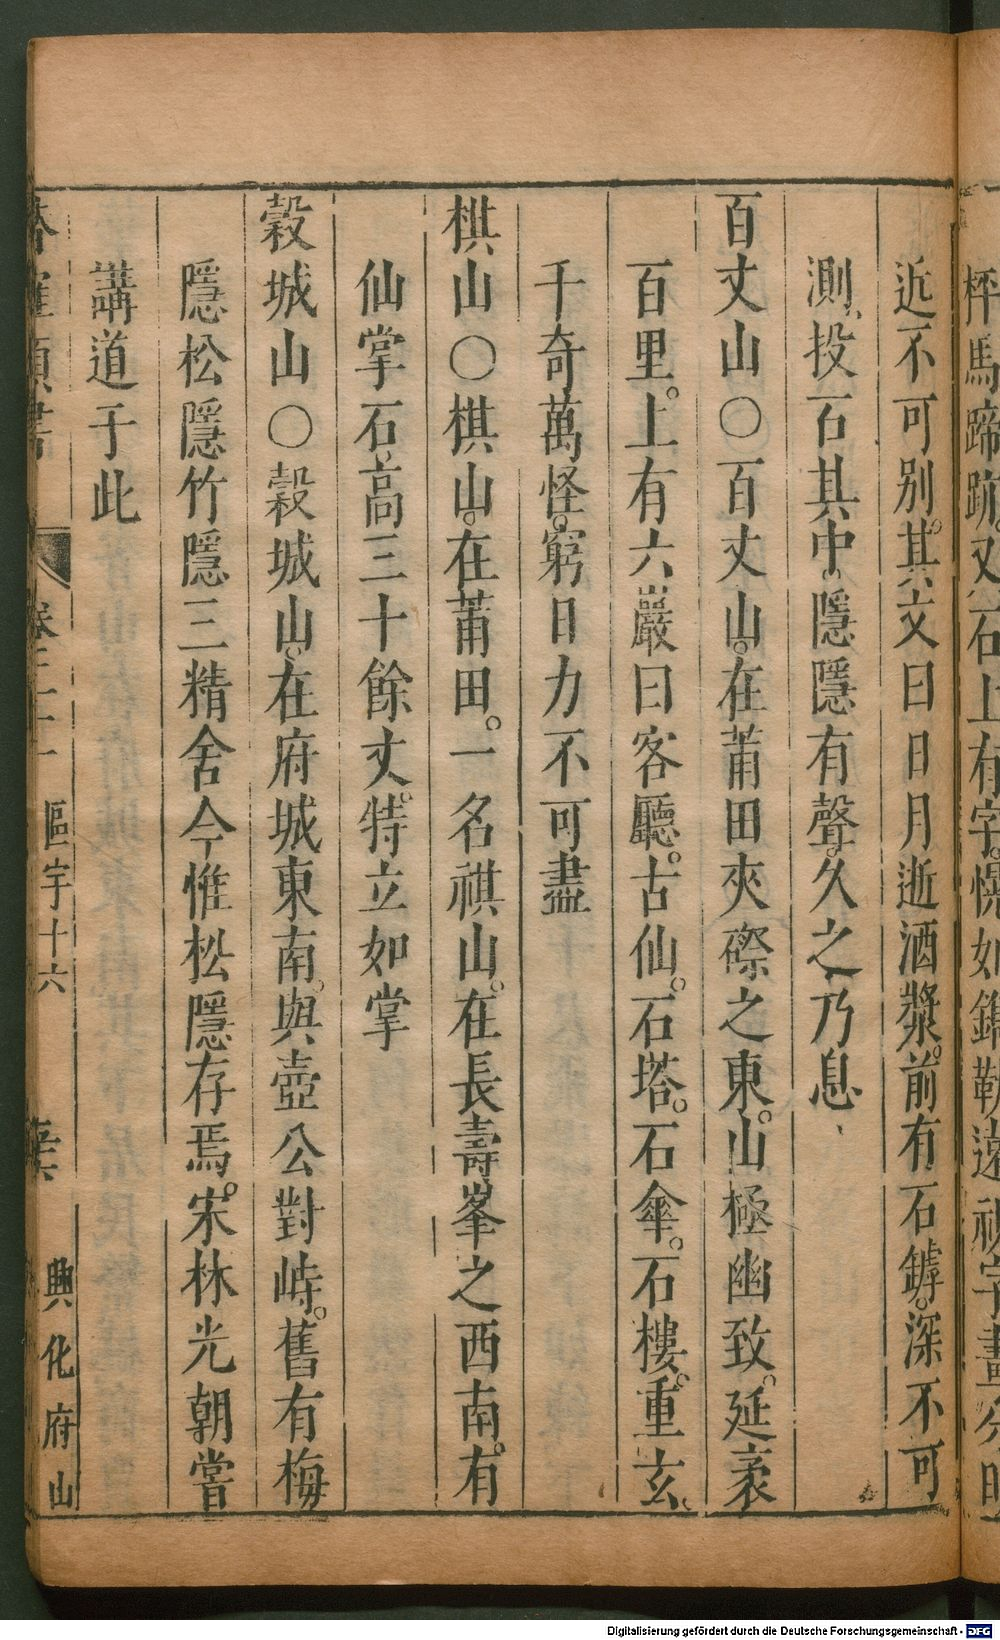 枰馬蹄跡又石上有字。惚如鐫勒遠視字畫分明
近不可别。其文曰日月逝酒漿。前有石罅。深不可
測、投石其中。隱隱有聲。久之乃息、
百丈山○百丈山。在莆田夾漈之東。山極幽致。延袤
百里。上有六巖曰客廳。古仙。石塔。石傘。石樓。重玄。
千奇萬怪。窮日力不可盡
棋山○棋山。在莆田。一名祺山。在長壽峯之西南。有
仙掌石。高三十餘丈。特立如掌
穀城山○穀城山。在府城東南。與壺公對峙。舊有梅
隱松隱竹隱三精舍今惟松隱存焉。宋林光朝嘗
講道于此
卷三十一 區宇十六 興化府山
Digitalisierung gefördert durch die Deutsche Forschungsgemeinschaft - DFG